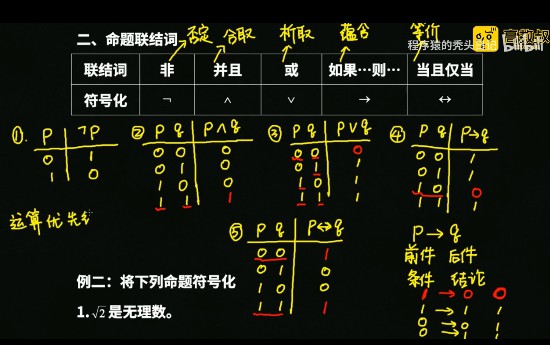 二、命题联结词
否定 合取 析取 蕴含 等价
程序猿的秃头 高数叔 bilibili
联结词 非 并且 或 如果…则… 当且仅当
符号化 ¬ ∧ ∨ → ↔
①
P ¬P
0 1
1 0
②
P q P∧q
0 0 0
0 1 0
1 0 0
1 1 1
③
P q P∨q
0 0 0
0 1 1
1 0 1
1 1 1
④
P q P→q
0 0 1
0 1 1
1 0 0
1 1 1
运算优先
⑤
P q P↔q
0 0 1
0 1 0
1 0 0
1 1 1
P → q
前件 后件
条件 结论
1 → 0 0
1 → 1 1
0 → 0 1
0 → 1 1
例二：将下列命题符号化
1.√2是无理数。